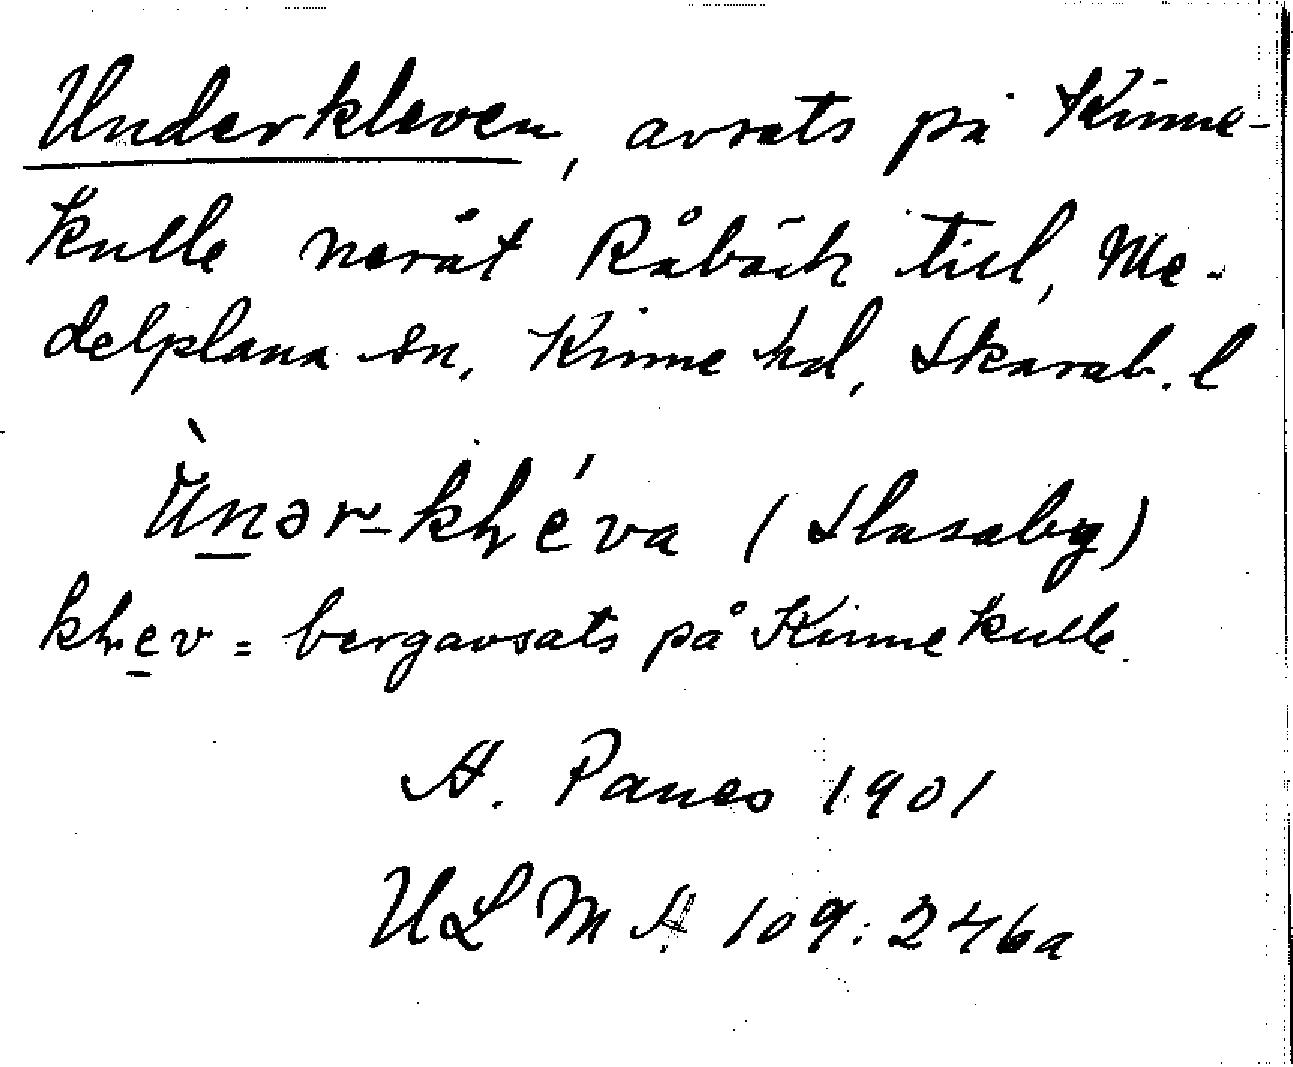 Underkleven, avsats på Kinne-
kulle neråt Råbäck till, Me-
delplana sn, Kinne hd, Skarab. l
(Slasaby)
= bergavsats på Kinnekulle.
A. 1901
ULMA 109:246a